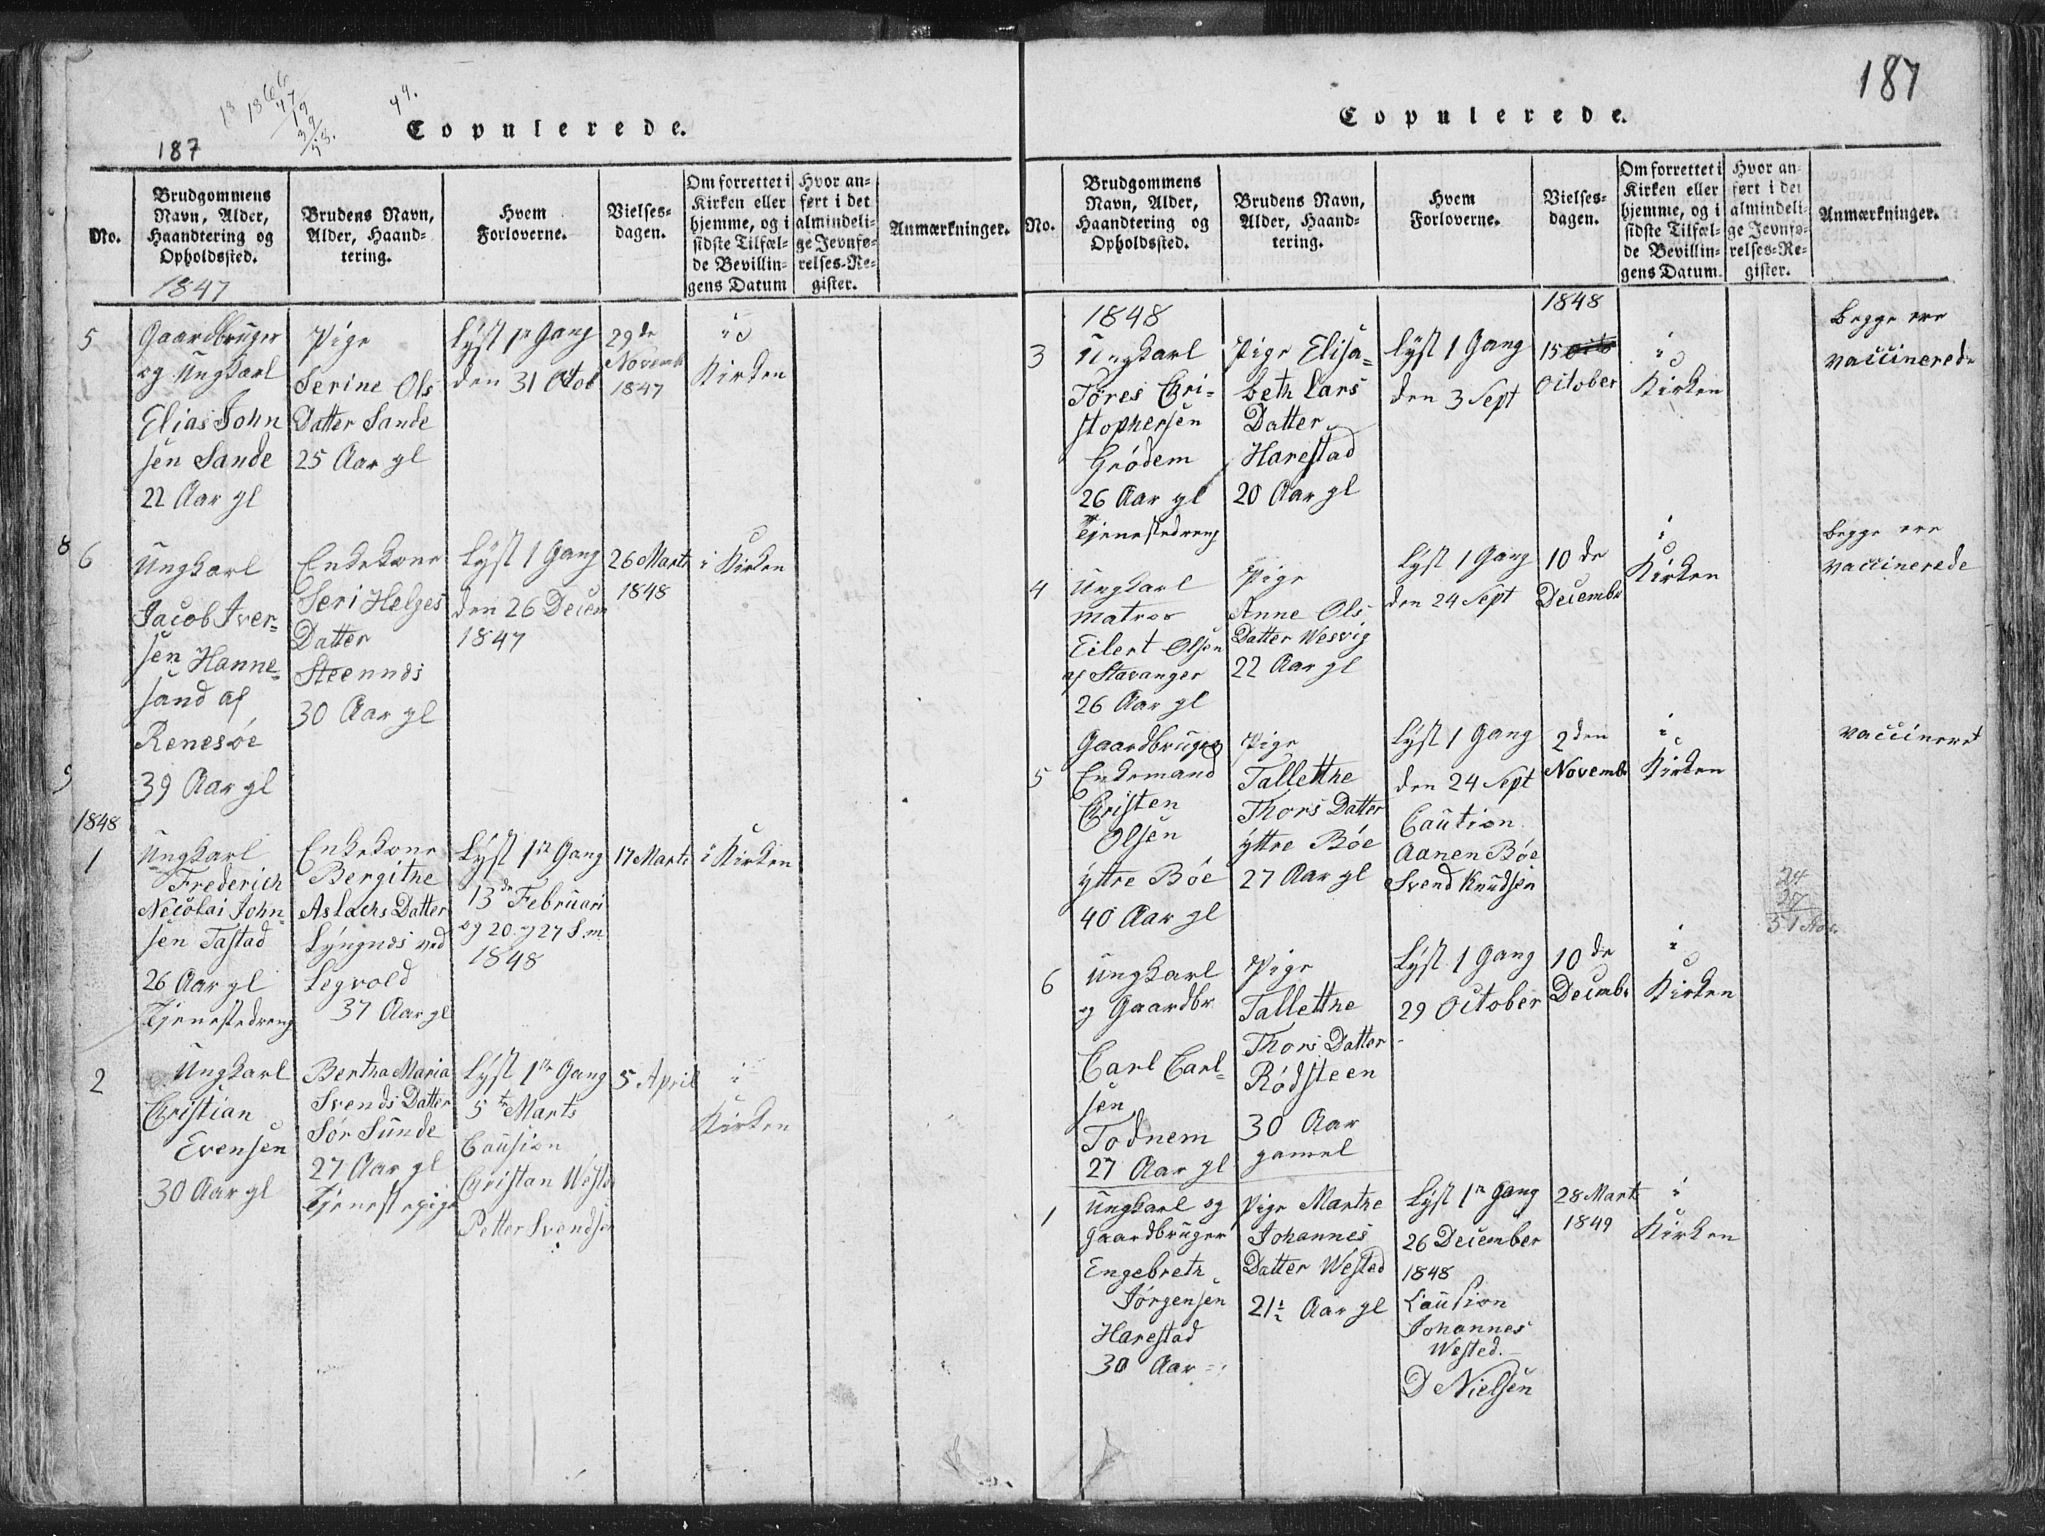 187
Copulerede.
No.
Brudgommens
Navn, Alder,
Haandtering og
Opholdssted.
Brudens Navn,
Alder, Haand-
tering.
Hvem
Forloverne.
Vielses-
dagen.
Om forrettet i
Kirken eller
hjemme, og i
sidste Tilfæl-
de Bevillin-
gens Datum
Hvor an-
ført i det
almindeli-
ge Jevnfø-
relses-Re-
gister.
Anmærkninger.
1847
5
Gaardbruger
og Ungkarl
Elias John
sen Sande
22 Aar gl
Pige
Serine Ols
Datter Sande
25 Aar gl
Lyst 1e Gang
den 31 Octob
29de
Novemb
1847
i
Kirken
8
6
Ungkarl
Jacob Iver-
sen Hanne-
sand af
Renesöe
39 Aar gl
Enkekone
Seri Helges
Datter
Steennes
30 Aar gl
Lyst 1 Gang
den 26 Decem
1847
26 Marts
1848
i Kirken
9
1848
1
Ungkarl
Frederich
Necolai John-
sen Tastad
26 Aar gl
Tjenestedreng
Enkekone
Bergithe
Aslachs Datter
Lyngnes ved
Legvold
37 Aar gl
Lyst 1e Gang
13de Februari
og 20 og 27 S.m.
1848
17 Marts
i Kirken
2
Ungkarl
Cristian
Evensen
30 Aar gl
Bertha Maria
Svends Datter
Sør Sunde
27 Aar gl
Tjenestepige
Lyst 1te Gang
5te Marts
Causion
Cristan Weste
Petter Svendsen
5 April
i
Kirken
187
Copulerede.
No.
Brudgommens
Navn, Alder,
Haandtering og
Opholdssted.
Brudens Navn,
Alder, Haand-
tering.
Hvem
Forloverne.
Vielses-
dagen.
Om forrettet i
Kirken eller
hjemme, og i
sidste Tilfæl-
de Bevillin-
gens Datum.
Hvor an-
ført i det
almindeli-
ge Jevnfø-
relses-Re-
gister.
Anmærkninger.
1848
1848
3
Ungkarl
Tøres Cri-
stophersen
Grödem
26 Aar gl
Tjenestedreng
Pige Elisa-
beth Lars
Datter
Harestad
20 Aar gl
Lyst 1 Gang
den 3 Sept
15
October
i
Kirken
Begge ere
vaccinerede
4
Ungkarl
Matros
Eilert Olsen
af Stavanger
26 Aar gl
Pige
Anne Ols
Datter Wesvig
22 Aar gl
Lyst 1 Gang
den 24 Sept
10 de
Decembr
i
Kirken
Begge ere
vaccinerede
5
Gaardbruger
Enkemand
Cristen
Olsen
yttre Böe
40 Aar gl
Pige
Tallethe
Thors Datter
yttre Böe
27 Aar gl
Lyst 1 Gang
den 24 Sept
Caution
Aanen Böe
Svend Knudsen
2 den
Novembr
i
Kirken
vaccineret
24
27
51 Aar
6
Ungkarl
og Gaardbr
Carl Carl-
sen
Todnem
27 Aar gl
Pige
Tallethe
Thors Datter
Rödsteen
30 Aar
gamel
Lyst 1 Gang
29 October
10 de
Decembr
i
Kirken
1
Ungkarl og
Gaardbruger
Engebreth
Jørgensen
Harestad
30 Aar
Pige Marthe
Johannes
Datter Wested
21½ Aar gl
Lyst 1e Gang
26 December
1848
Causion
Johannes
Wested.
D Nielsen
28 Mart
1849
i
Kirken